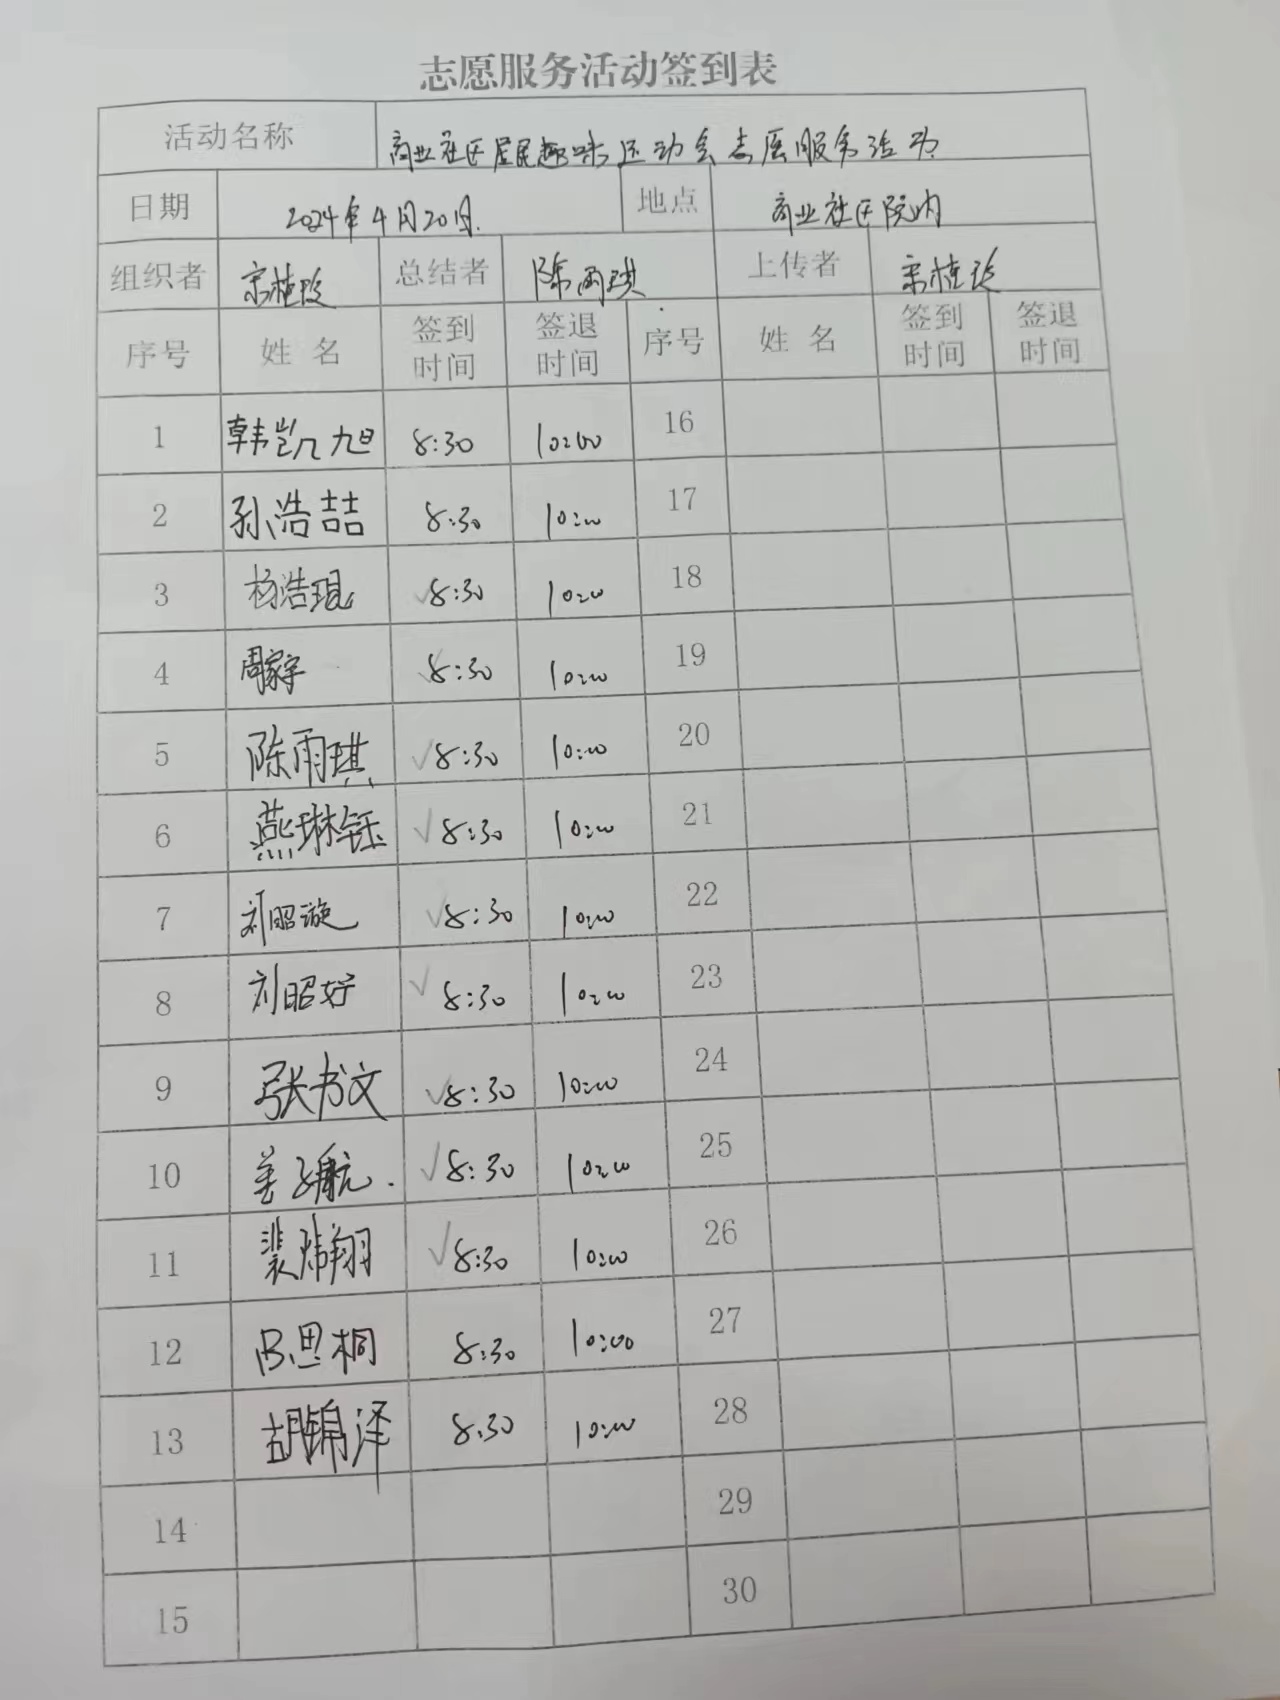 志愿服务活动签到表
活动名称 商业社区居民趣味运动会志愿服务活动
日期 2024年4月20日. 地点 商业社区院内
组织者 宋桂玲 总结者 陈雨琪 上传者 宋桂玲
序号 姓名 签到时间 签退时间 序号 姓名 签到时间 签退时间
1 韩凯旭 8:30 10:00 16
2 孙浩喆 8:30 10:00 17
3 杨浩琨 √8:30 10:00 18
4 周家宇 √8:30 10:00 19
5 陈雨琪 √8:30 10:00 20
6 燕琳钰 √8:30 10:00 21
7 刘昭漩 √8:30 10:00 22
8 刘昭好 √8:30 10:00 23
9 张书文 √8:30 10:00 24
10 姜子航. √8:30 10:00 25
11 裴炜翔 √8:30 10:00 26
12 吕思桐 8:30 10:00 27
13 胡锦泽 8:30 10:00 28
14 29
15 30